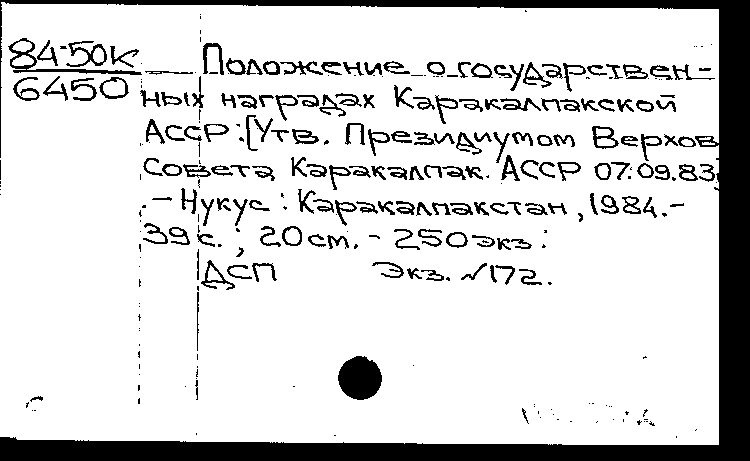 84-50к
6450
Положение о государствен-
ных наградах Каракалпакской
АССР: [Утв. Президиумом Верхов
Совета Каракалпак. АССР 07.09.83]
.— Нукус : Каракалпакстан, 1984.-
39 с. ; 20 cm. - 250 экз.
ДСП Экз. №172.